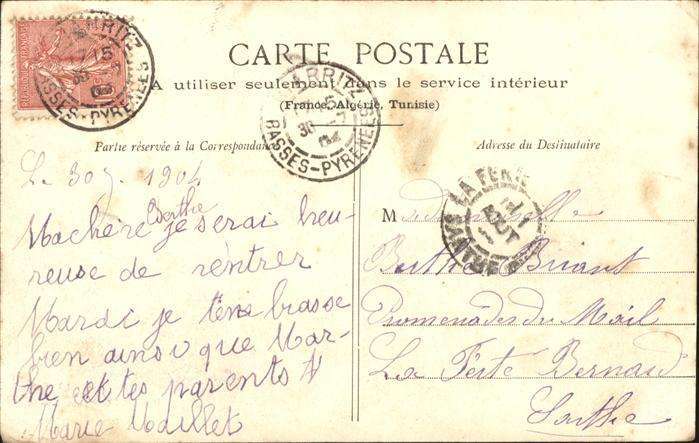 CARTE POSTALE
A utiliser seulement dans le service intérieur
(France, Algérie, Tunisie)
Partie réservée à la Correspondance
Adresse du Destinataire
BIARRITZ
BASSES-PYRENEES
BIARRITZ
BASSES-PYRENEES
LA FERTE
SARTHE
Le 30 1904
Ma chère Berthe je serai heu-
reuse de rentrer
Mardi je tenbrasse
bien ainsi que Mar-
the et tes parents
Marie Maillet
Mademoiselle
Berthe Briant
Promenades du Mail
La Ferte Bernard
Sarthe